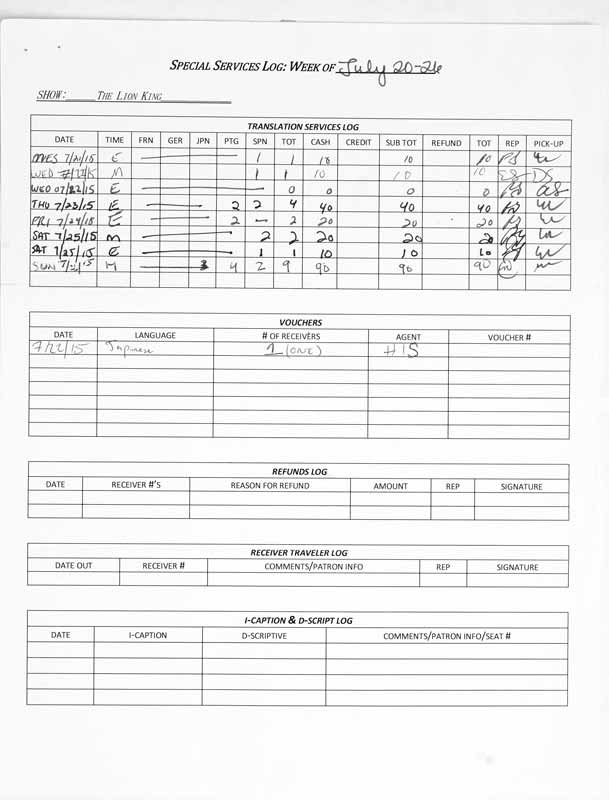 SPECIAL SERVICES LOG: WEEK OF July 20-26
SHOW: THE LION KING
TRANSLATION SERVICES LOG
DATE TIME FRN GER JPN PTG SPN TOT CASH CREDIT SUB TOT REFUND TOT REP PICK-UP
TUES 7/21/15 E 1 1 10 10 10
WED 7/22/15 M 1 1 10 10 10 ES DS
WED 07/22/15 E 0 0 0 0 as
THU 7/23/15 E 2 2 4 40 40 40
FRI 7/24/15 E 2 - 2 20 20 20
SAT 7/25/15 M 2 2 20 20 20
SAT 7/25/15 E 1 1 10 10 10
SUN 7/26/15 M 3 4 2 9 90 90 90
VOUCHERS
DATE LANGUAGE # OF RECEIVERS AGENT VOUCHER #
7/22/15 Japanese 1 (ONE) HIS
REFUNDS LOG
DATE RECEIVER #'S REASON FOR REFUND AMOUNT REP SIGNATURE
RECEIVER TRAVELER LOG
DATE OUT RECEIVER # COMMENTS/PATRON INFO REP SIGNATURE
I-CAPTION & D-SCRIPT LOG
DATE I-CAPTION D-SCRIPTIVE COMMENTS/PATRON INFO/SEAT #